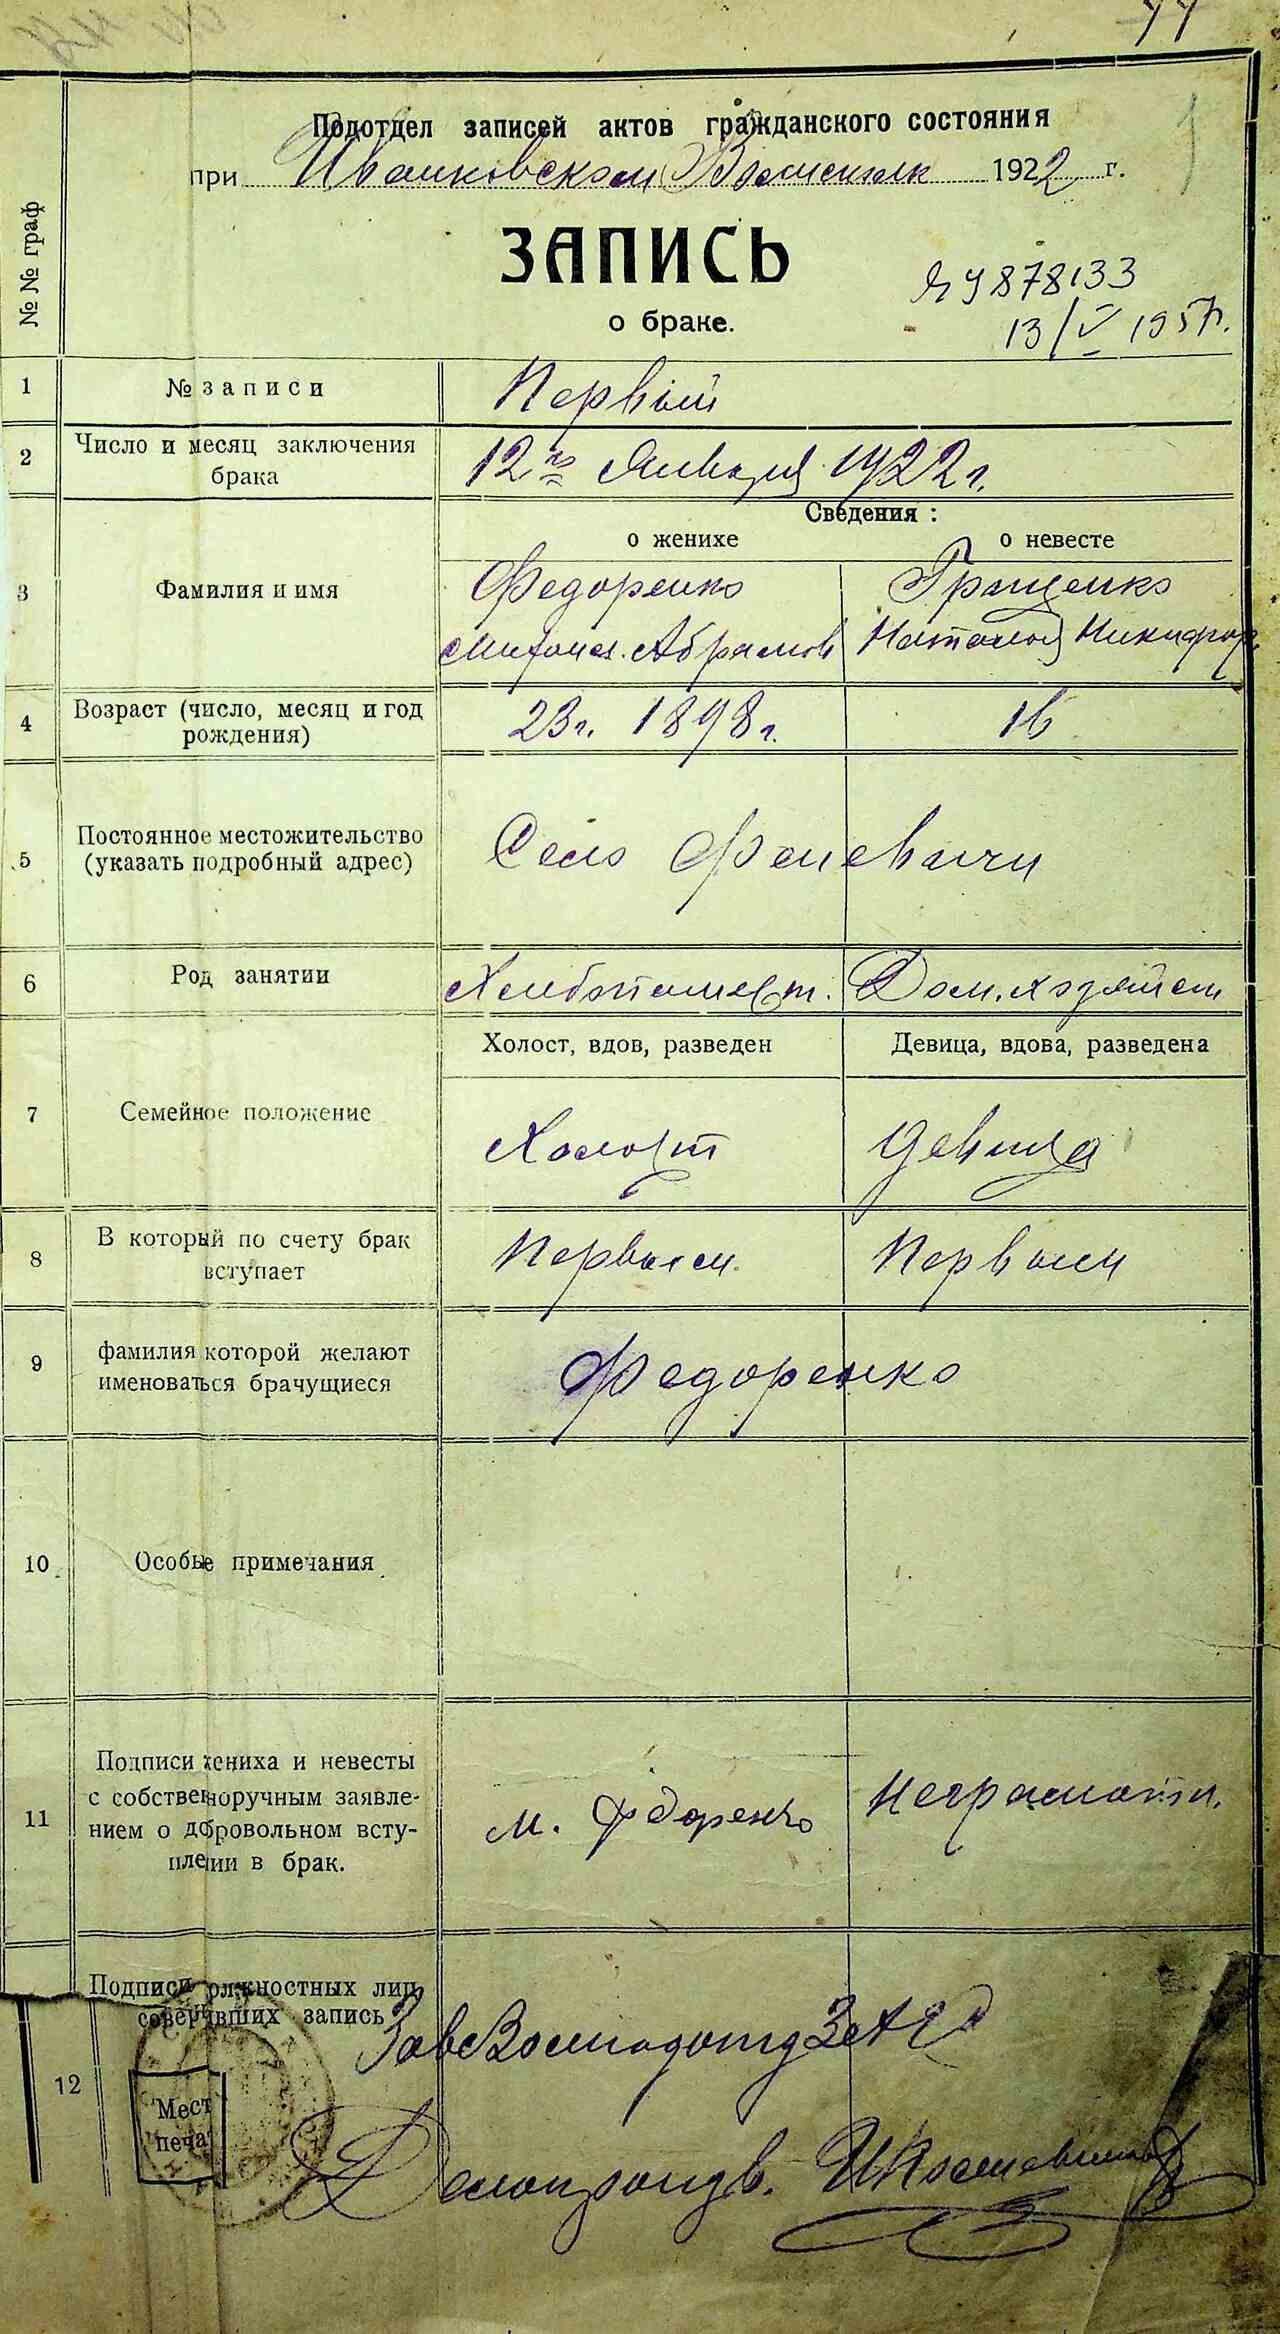 44
Подотдел записей актов гражданского состояния
при Иванковском Волисполк 1922 г.
1
ЗАПИСЬ
о браке.
878133
13/V 1957г.
№ № граф
1 № записи Первый
2 Число и месяц заключения
брака
12го Января 1922 г.
Сведения:
о женихе о невесте
3 Фамилия и имя
Федоренко Грищенко
Михаил Абрамов Наталия Никифор.
4 Возраст (число, месяц и год
рождения)
23 г. 1898 г. 16
5 Постоянное местожительство
(указать подробный адрес)
Село Феневичи
6 Род занятии Хлебопашест. Дом. хозяйст
Холост, вдов, разведен Девица, вдова, разведена
7 Семейное положение Холост Девица
8 В который по счету брак
вступает
Первым Первым
9 фамилия которой желают
именоваться брачущиеся
Федоренко
10 Особые примечания
11 Подписи жениха и невесты
с собственоручным заявле-
нием о добровольном всту-
плении в брак.
М. Федоренко Неграмотн.
12 Подписи должностных лиц
совершивших запись
Мест
печа
Зав
Делопроизв.